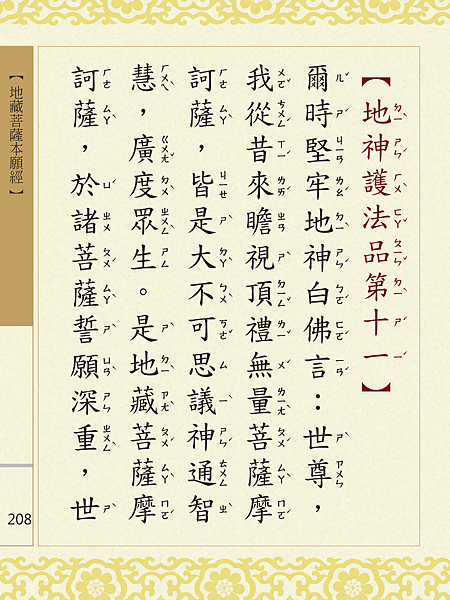 【地神護法品第十一】
爾時堅牢地神白佛言：世尊，
我從昔來瞻視頂禮無量菩薩摩
訶薩，皆是大不可思議神通智
慧，廣度眾生。是地藏菩薩摩
訶薩，於諸菩薩誓願深重，世
【地藏菩薩本願經】
208